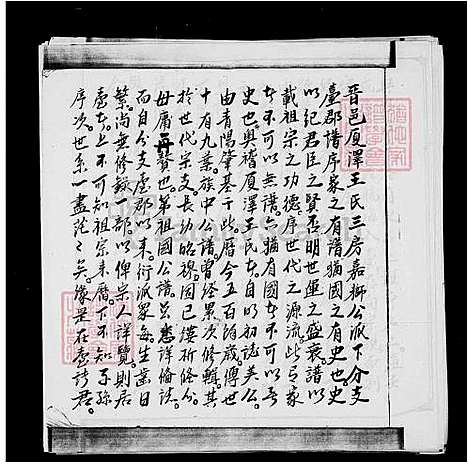 晉邑厦澤王氏三房嘉獅公派下分支
臺郡譜序。家之有譜猶國之有史也。史
以紀君臣之賢否明世運之盛衰。譜以
載祖宗之功德。序世代之源流。此有家
者不可以無譜。亦猶有國者不可以無
史也。奧稽厦澤王氏者。自明初
公。由青陽肇基于此。曆今五百餘歲。傳世
十有九葉。族中公譜。曾經累次修輯。其
於世代宗支長幼昭穆。固已縷析條分。
毋庸再贅也。第祖國公譜。悉詳備誌。
而自分支臺郡以來。衍派衆多。生齒日
繁。尚無修錄一部。以俾宗人詳覽。則居
臺者。上不可知祖宗來曆。下不知子孫
序次。世系一盡茫茫矣。緣是在臺諸君。